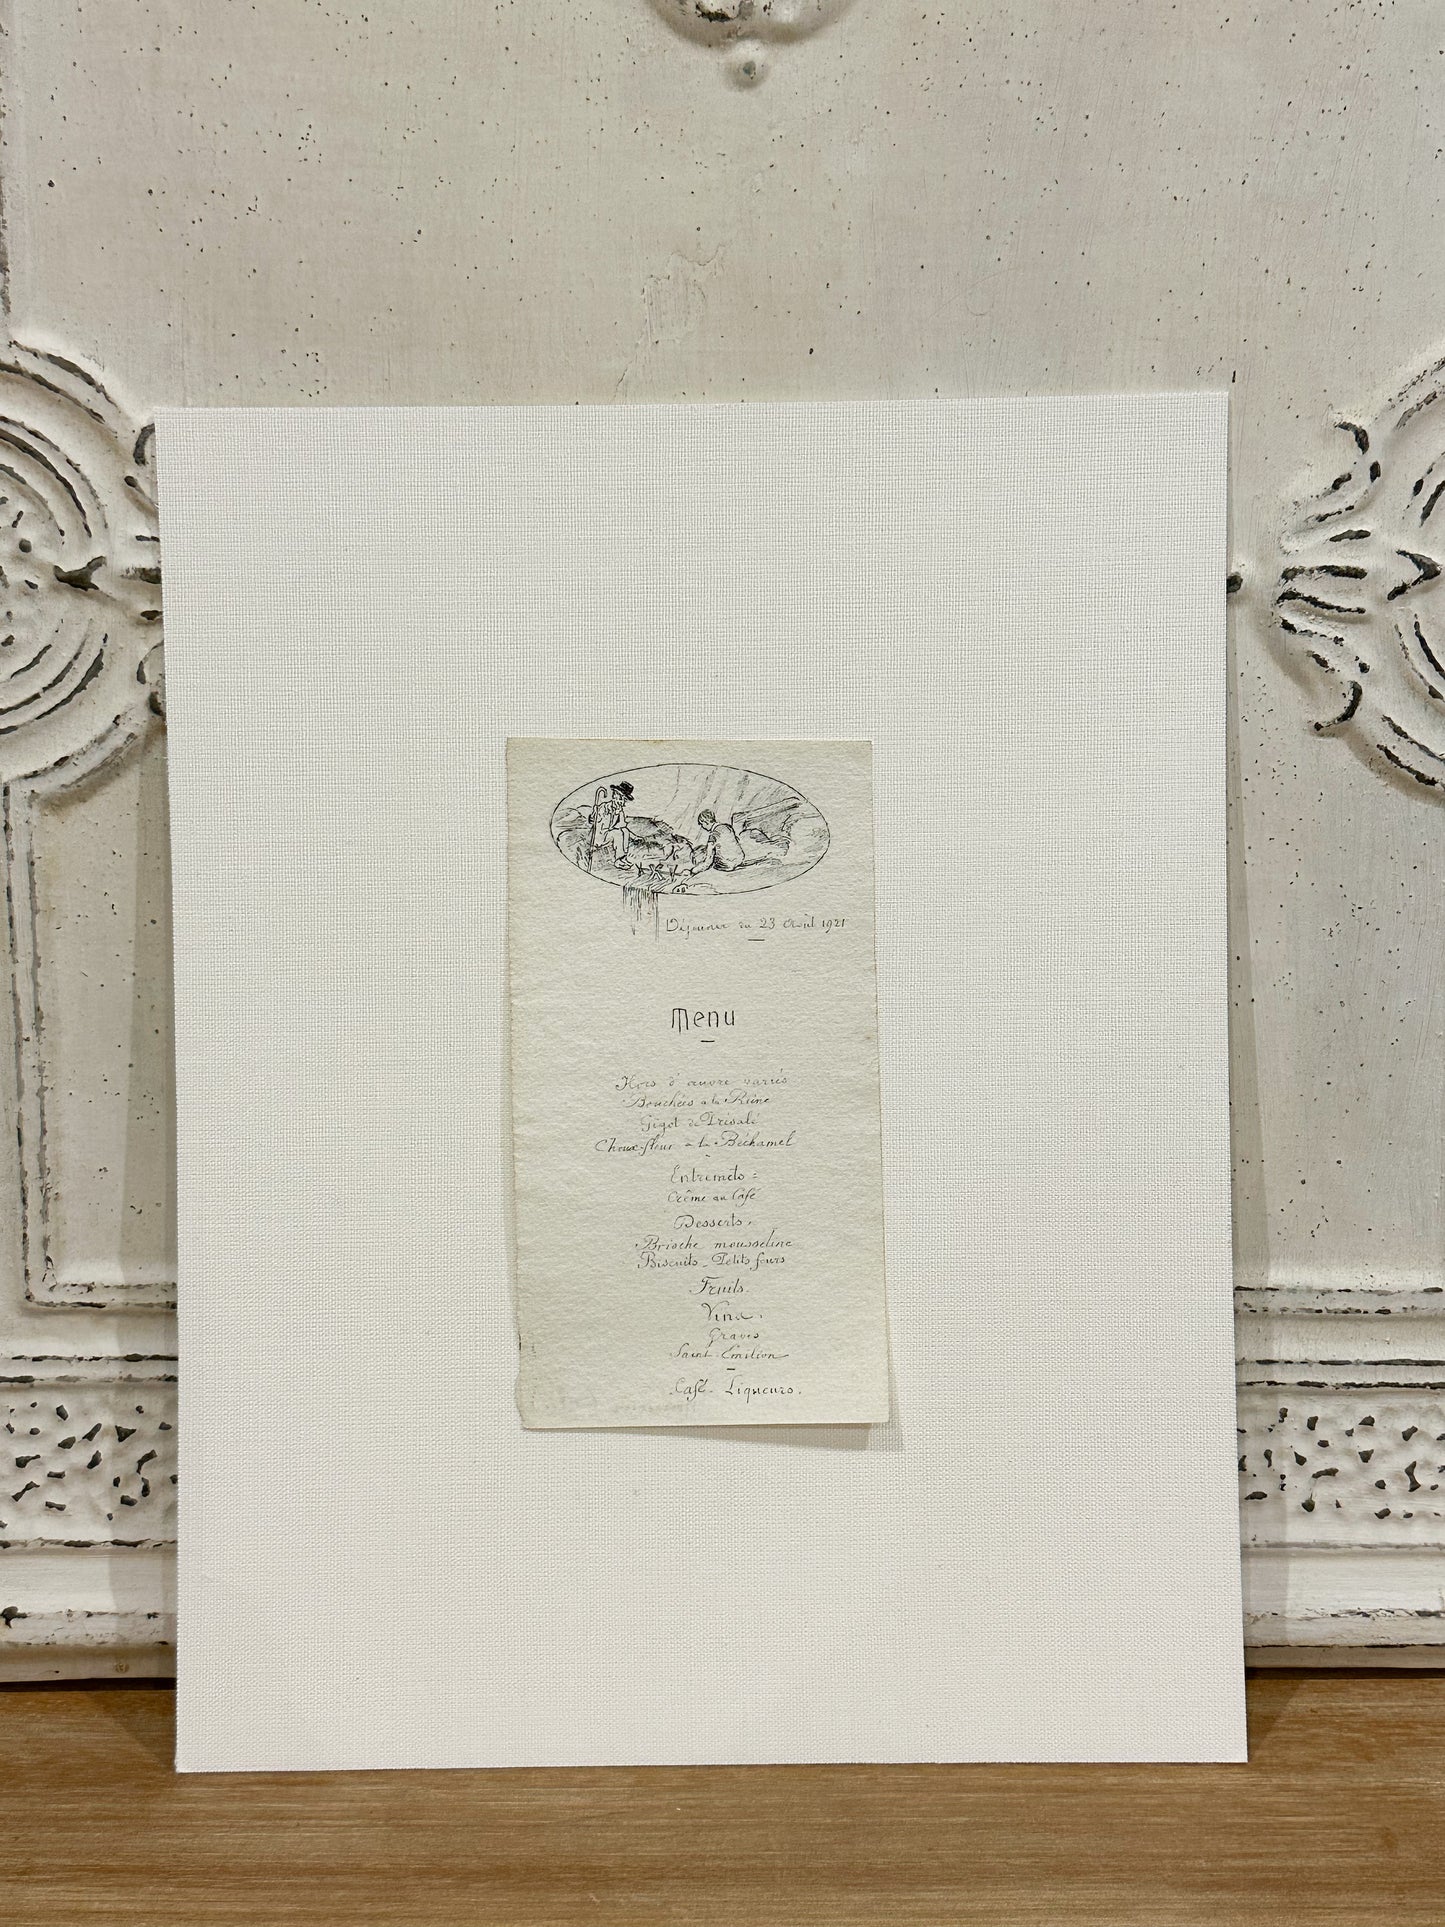 Déjeuner du 23 Août 1921
Menu
Hors d'œuvre variés
Bouchées à la Reine
Gigot de Présalé
Choux-fleur à la Béchamel
Entremets =
Crème au Café
Desserts.
Brioche mousseline
Biscuits - Petits fours
Fruits.
Vins.
Graves
Saint-Emilion
Café - Liqueurs.